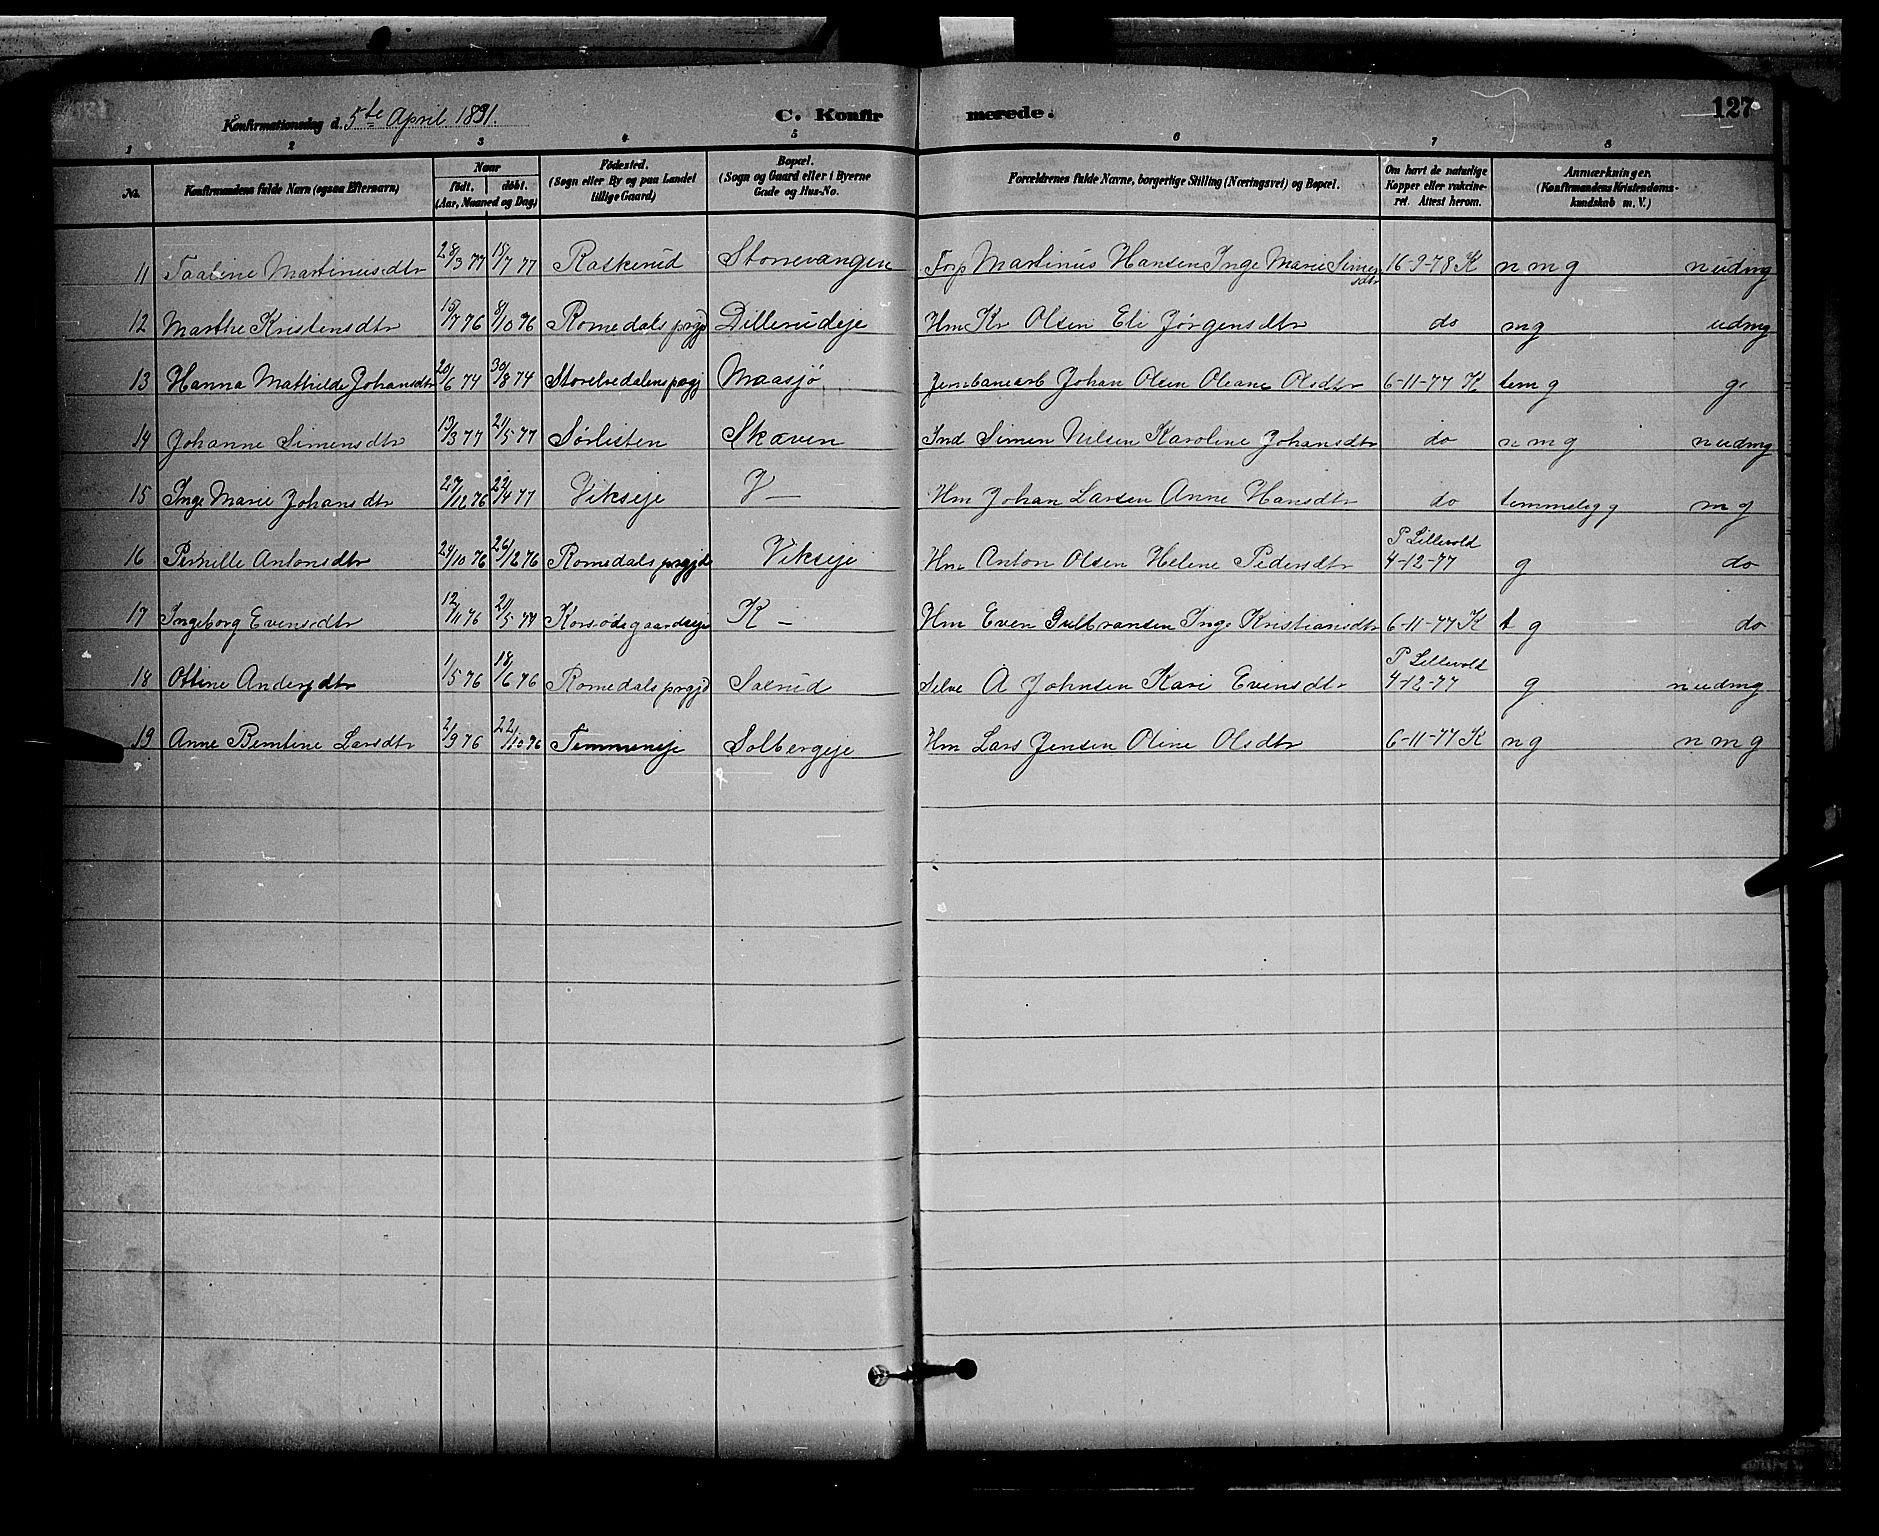 Konfirmationsdag d. 5te April 1891.
C. Konfirmerede.
127
1 2 3 4 5 6 7 8
No.
Konfirmandens fulde Navn (ogsaa Efternavn)
Naar
født. døbt.
(Aar, Maaned og Dag)
Fødested.
(Sogn eller By og paa Landet
tillige Gaard)
Bopæl.
(Sogn og Gaard eller i Byerne
Gade og Hus-No.
Forældrenes fulde Navne, borgerlige Stilling (Næringsvei) og Bopæl.
Om havt de naturlige
Kopper eller vakcine-
ret. Attest herom.
Anmærkninger.
(Konfirmandens Kristendoms-
kundskab m. V.)
11 Taaline Martinusdtr 28/3 77 15/7 77 Raskerud Storrevangen Forp Martinus Hansen Inge Marie Simensdtr 16-9-78 K n m g n udmg
12 Marthe Kristensdtr 15/7 76 8/10 76 Romedals prgjd Dillerudeje Hm Kr Olsen Eli Jørgensdtr do mg udmg
13 Hanna Mathilde Johansdtr 20/6 74 30/8 74 Storelvedalens prgj Maasjø Jernbanearb Johan Olsen Oleane Olsdtr 6-11-77 K tem g g
14 Johanne Simensdtr 13/3 77 21/5 77 Sørlisten Skæven Ind Simen Nilsen Karoline Johansdtr do n m g n udmg
15 Inge Marie Johansdtr 27/12 76 22/4 77 Vikseje V— Hm Johan Larsen Anne Hansdtr do temmelig g m g
16 Pernille Antonsdtr 24/10 76 26/12 76 Romedals prgjd Vikseje Hm Anton Olsen Helene Pedersdtr P Lillevold 4-12-77 g do
17 Ingeborg Evensdtr 12/11 76 21/5 77 Korsødegaardseje K— Hm Even Gulbransen Inge Kristiansdtr 6-11-77 K t g do
18 Ottine Andersdtr 1/5 76 18/6 76 Romedals prgjd Solrud Selve A Johnsen Kari Evensdtr P Lillevold 4-12-77 g n udmg
19 Anne Berntine Larsdtr 2/9 76 22/10 76 Temmeneje Solbergeje Hm Lars Jensen Oline Olsdtr 6-11-77 K n g n m g